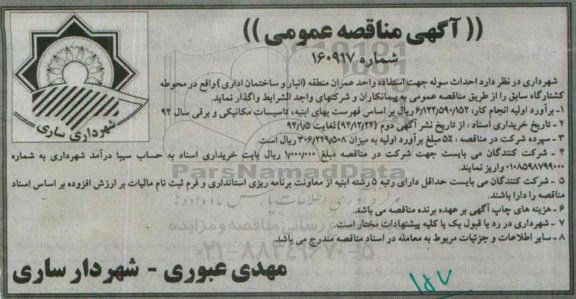 (( آگهی مناقصه عمومی ))
شماره ۱۶۰۹۱۷
شهرداری ساری
شهرداری در نظر دارد احداث سوله جهت استفاده واحد عمران منطقه (انبار و ساختمان اداری) واقع در محوطه
کشتارگاه سابق را از طریق مناقصه عمومی به پیمانکاران و شرکتهای واجد الشرایط واگذار نماید.
۱- برآورد اولیه انجام کار: ۶/۱۲۴/۵۹۰/۱۵۲ ریال بر اساس فهرست بهای ابنیه، تاسیسات مکانیکی و برقی سال ۹۲
۲- تاریخ خریداری اسناد : از تاریخ نشر آگهی دوم (۹۲/۱۲/۲۴) لغایت ۹۳/۱/۵
۳- سپرده شرکت در مناقصه: ۵٪ مبلغ برآورد اولیه به میزان ۳۰۶/۲۲۹/۵۰۸ ریال است
۴- شرکت کنندگان می بایست جهت شرکت در مناقصه مبلغ ۱/۰۰۰/۰۰۰ ریال بابت خریداری اسناد به حساب سیبا درآمد شهرداری به شماره
۰۱۰۸۵۹۸۷۹۹۰۰۰ واریز نمایند.
۵- شرکت کنندگان می بایست حداقل دارای رتبه ۵ رشته ابنیه از معاونت برنامه ریزی استانداری و فرم ثبت نام مالیات بر ارزش افزوده بر اساس اسناد
مناقصه را دارا باشند.
۶- هزینه های چاپ آگهی بر عهده برنده مناقصه می باشد.
۷- شهرداری در رد یا قبول یک یا کلیه پیشنهادات مختار است
۸- سایر اطلاعات و جزئیات مربوط به معامله در اسناد مناقصه مندرج می باشد.
مهدی عبوری - شهردار ساری
ParsNamadData
۰۲۱-۸۸۳۴۹۶۷۰-۵
۱۸۷